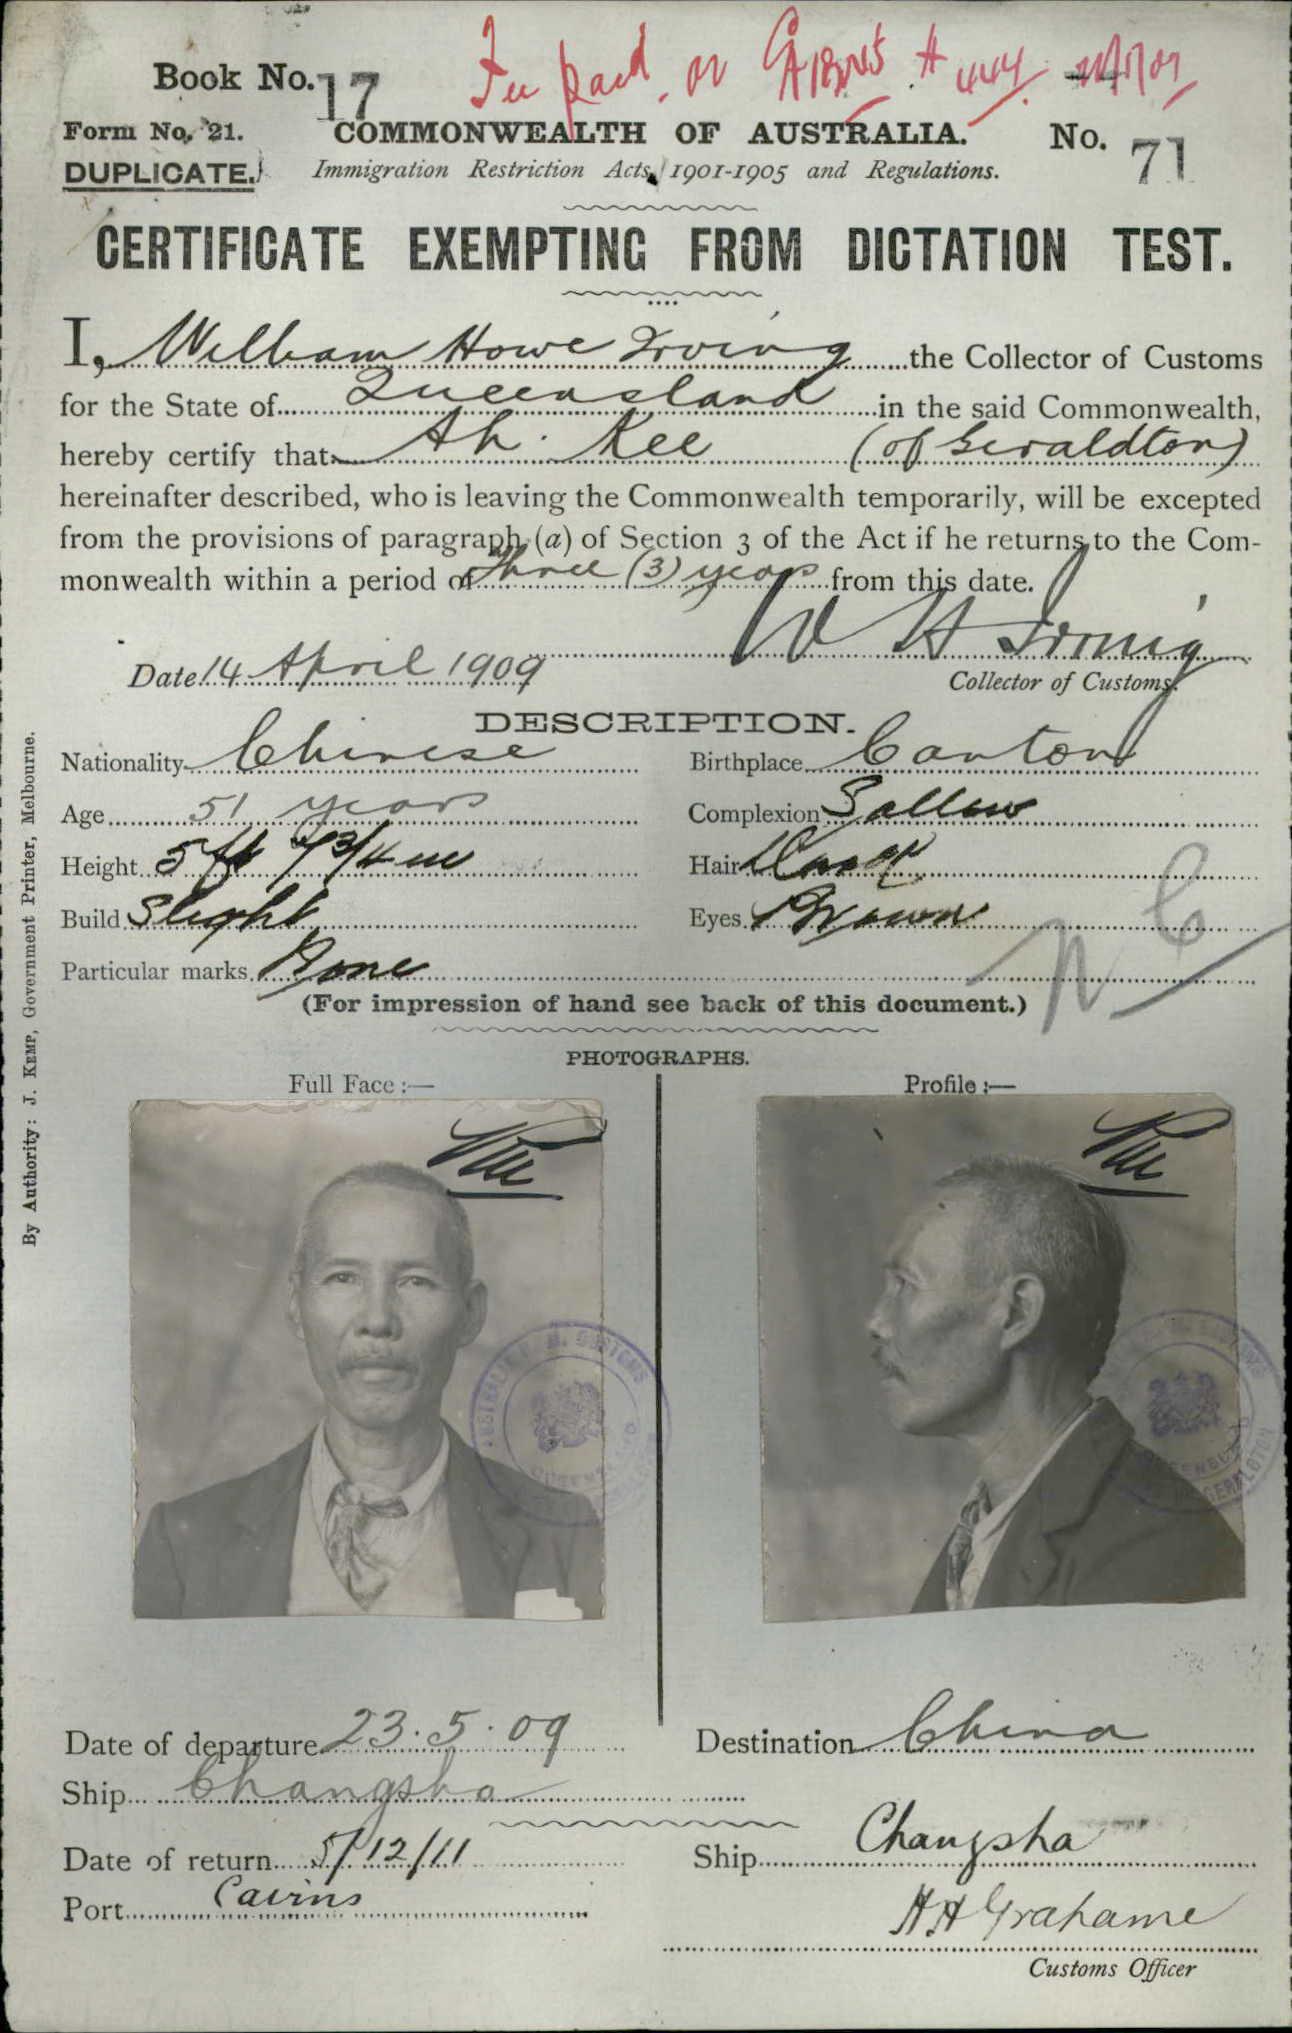 Fee paid on
Book No. 17
Form No. 21.
COMMONWEALTH OF AUSTRALIA.
No. 71
DUPLICATE.
Immigration Restriction Acts, 1901-1905 and Regulations.
CERTIFICATE EXEMPTING FROM DICTATION TEST.
I, William Howe Irving the Collector of Customs
for the State of Queensland in the said Commonwealth,
hereby certify that Ah Kee (of Geraldton)
hereinafter described, who is leaving the Commonwealth temporarily, will be excepted
from the provisions of paragraph (a) of Section 3 of the Act if he returns to the Com-
monwealth within a period of three (3) years from this date.
W H Irving
Date 14 April 1909
Collector of Customs.
DESCRIPTION.
Nationality Chinese
Birthplace Canton
Age 51 years
Complexion Sallow
Height 5 ft 7 3/4 in
Hair
Build Slight
Eyes Brown
Particular marks None
(For impression of hand see back of this document.)
PHOTOGRAPHS.
Full Face :—
Profile :—
By Authority: J. KEMP, Government Printer, Melbourne.
Date of departure 23.5.09
Destination China
Ship Changsha
Date of return 5/12/11
Ship Changsha
Port Cairns
H H Grahame
Customs Officer